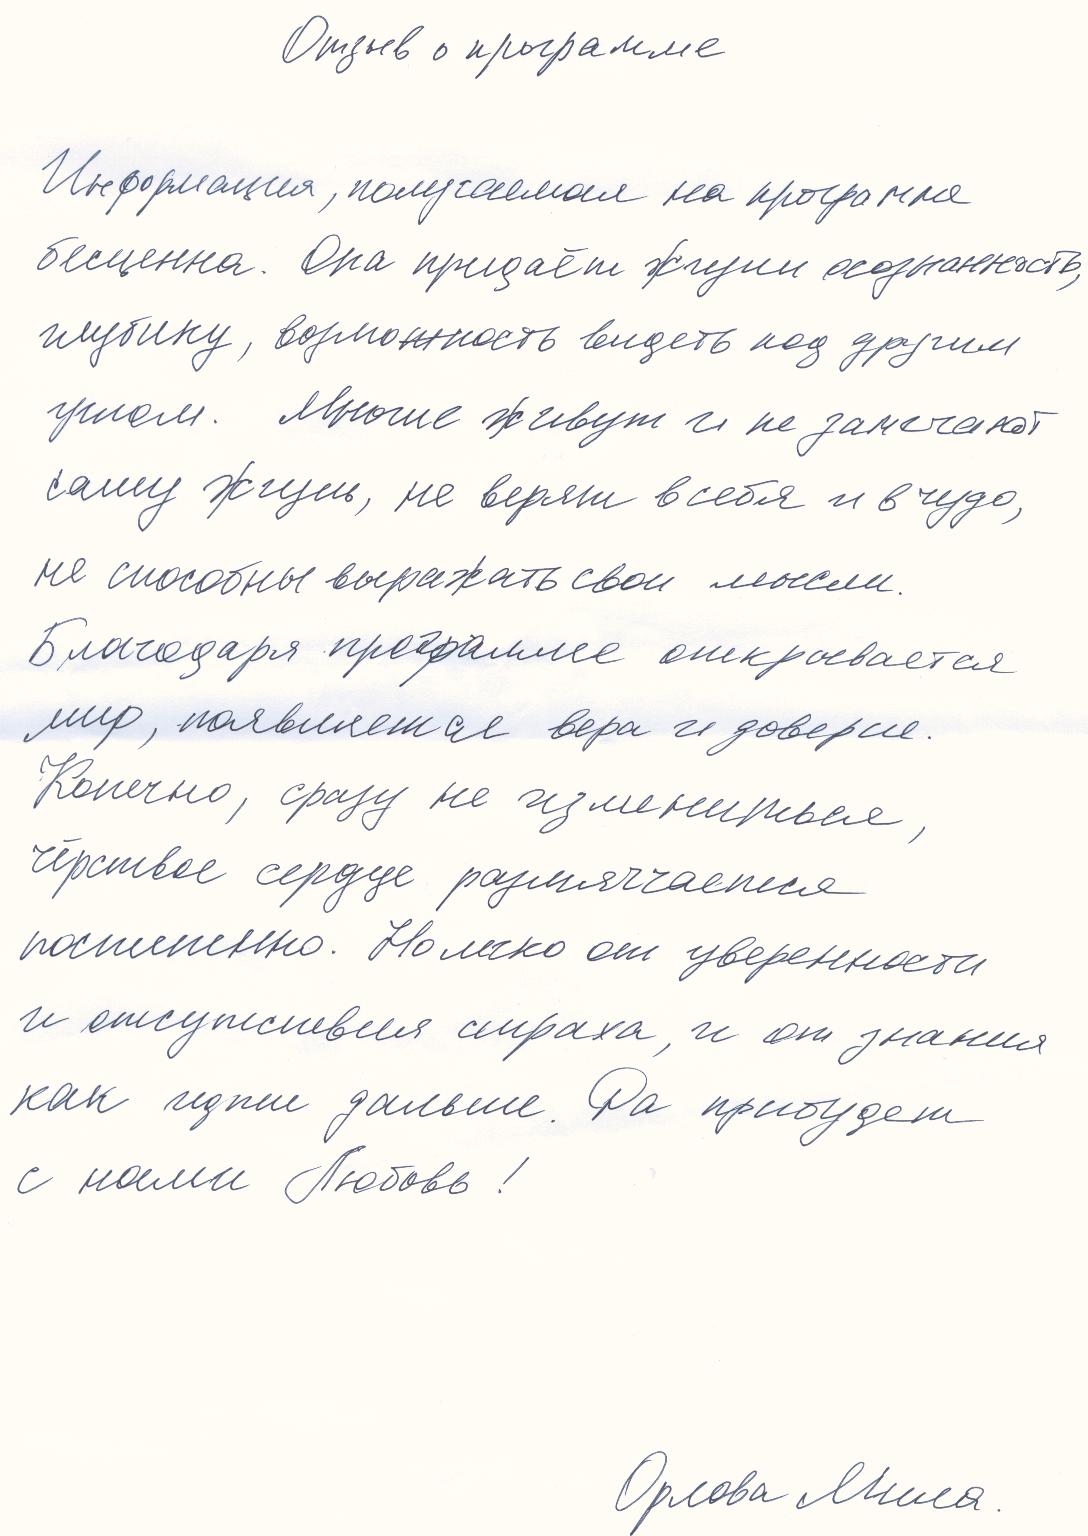 Отзыв о программе
Информация, получаемая на программе
бесценна. Она придаёт жизни осознанность,
глубину, возможность видеть под другим
углом. Многие живут и не замечают
саму жизнь, не верят в себя и в чудо,
не способны выражать свои мысли.
Благодаря программе открывается
мир, появляется вера и доверие.
Конечно, сразу не измениться,
чёрствое сердце размягчается
постепенно. Но легко от уверенности
и отсутствия страха, и от знания
как идти дальше. Да прибудет
с нами Любовь!
Орлова Мила.